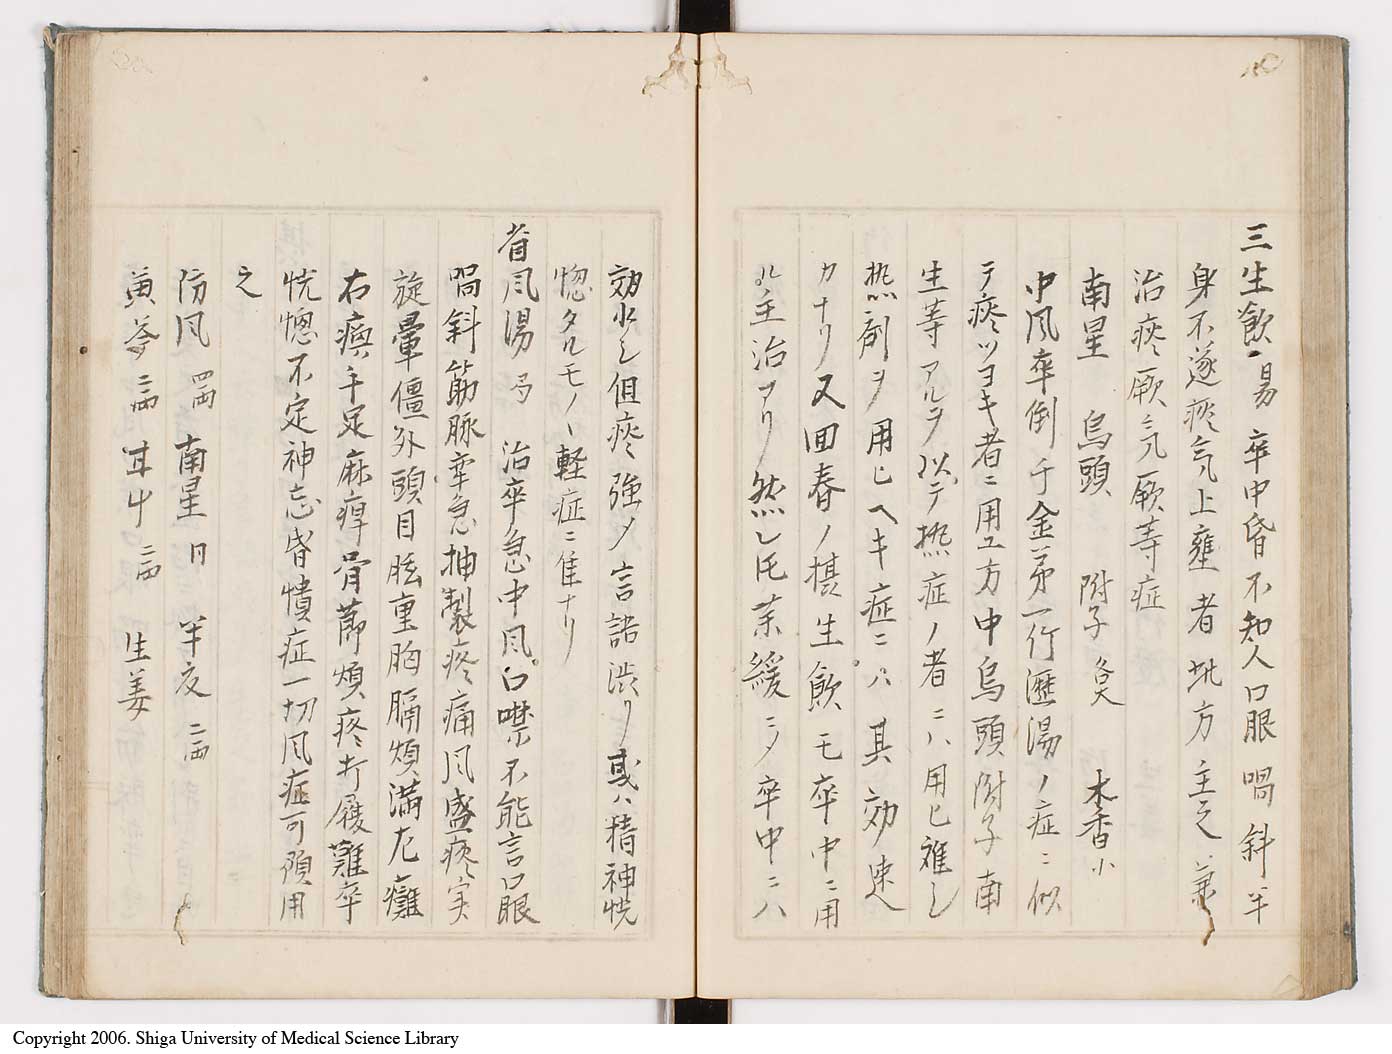 三生飲 易 卒中昏不知人口眼喎斜半
身不遂痰気上壅者此方主之兼
治痰厥気厥等症
南星 烏頭 附子 各大 木香 小
中風卒倒于金弟一行瀝湯ノ症ニ似
テ痰ツヨキ者ニ用ユ方中烏頭附子南
生等アルヲ以テ熱症ノ者ニハ用ヒ難シ
熱剤ヲ用ヒヘキ症ニハ其効速
カナリ又回春ノ摂生飲モ卒中ニ用
ル主治アリ然レ𪜈緩ニシテ卒中ニハ
効少シ但痰強メ言語渋リ或ハ精神恍
惚タルモノヽ軽症ニ隹ナリ
省風湯 局 治卒急中風口噤不能言口眼
喎斜筋脉牽急抽製疼痛風盛痰実
旋暈僵外頭目眩重胸膈煩満尢癱
右瘓手足麻痺骨莭煩疼歩履難卒
恍惚不定神忘昏憒症一切風症可預用
之
防風 四両 南星 日 半夏 二両
黄芩 二両 甘中 二両 生姜
Copyright 2006. Shiga University of Medical Science Library